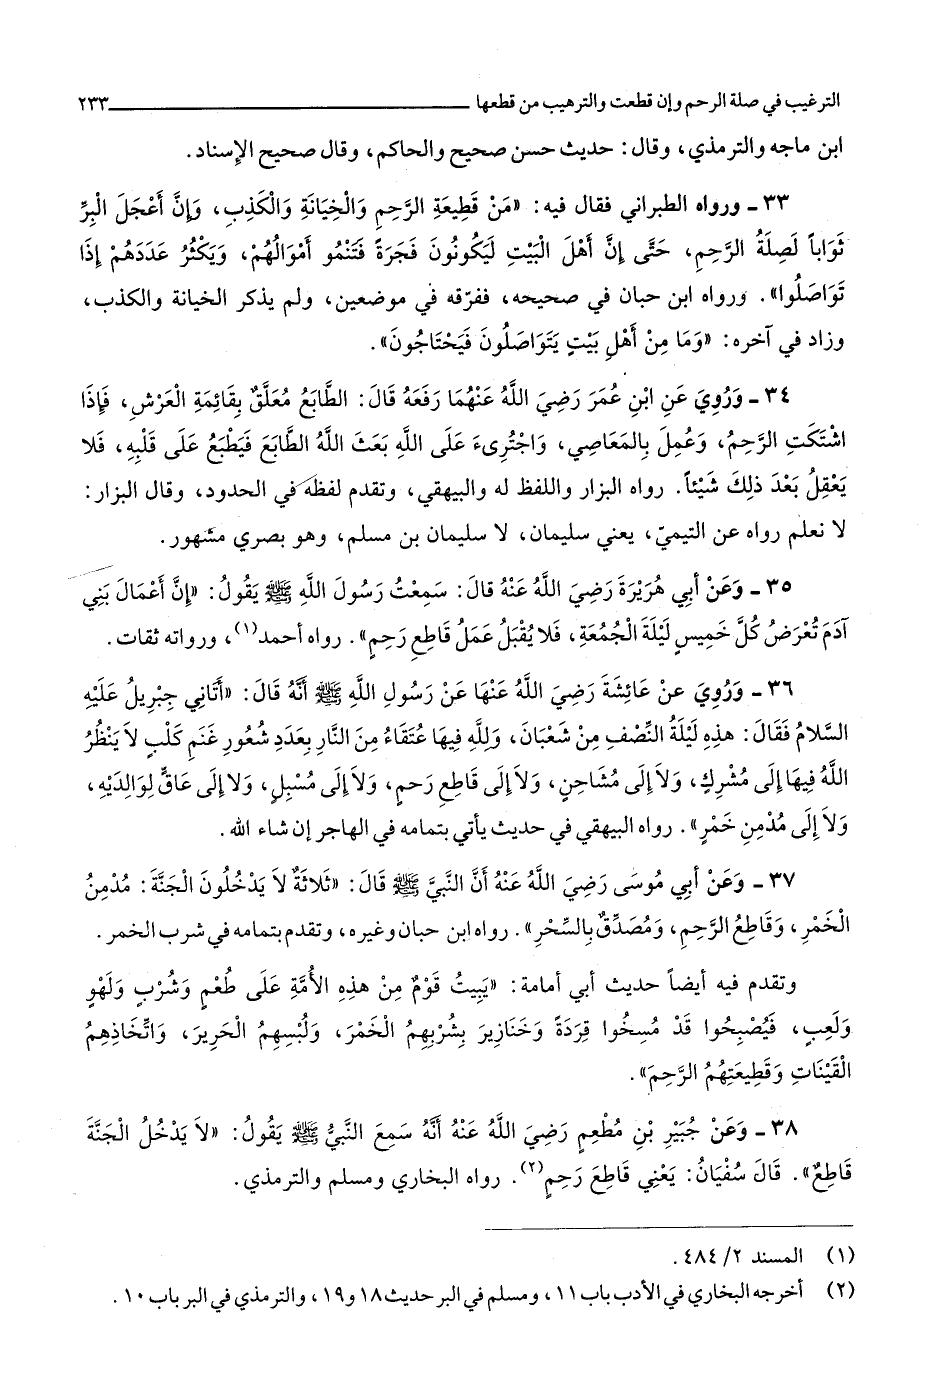 الترغيب في صلة الرحم وإن قطعت والترهيب من قطعها ٢٣٣
ابن ماجه والترمذي، وقال: حديث حسن صحيح والحاكم، وقال صحيح الإسناد.
٣٣ ـ ورواه الطبراني فقال فيه: «مَنْ قَطِيعَةِ الرَّحِمِ وَالْخِيَانَةِ وَالْكَذِبِ، وَإِنَّ أَعْجَلَ الْبِرِّ
ثَوَاباً لَصِلَةُ الرَّحِمِ، حَتَّى إِنَّ أَهْلَ الْبَيْتِ لَيَكُونُونَ فَجَرَةً فَتَنْمُو أَمْوَالُهُمْ، وَيَكْثُرُ عَدَدَهُمْ إِذَا
تَوَاصَلُوا». ورواه ابن حبان في صحيحه، ففرّقه في موضعين، ولم يذكر الخيانة والكذب،
وزاد في آخره: «وَمَا مِنْ أَهْلِ بَيْتٍ يَتَوَاصَلُونَ فَيَحْتَاجُونَ».
٣٤ ـ وَرُوِيَ عَنِ ابْنِ عُمَرَ رَضِيَ اللَّهُ عَنْهُمَا رَفَعَهُ قَالَ: الطَّابَعُ مُعَلَّقٌ بِقَائِمَةِ الْعَرْشِ، فَإِذَا
اشْتَكَتِ الرَّحِمُ، وَعُمِلَ بِالمَعَاصِي، وَاجْتُرِىءَ عَلَى اللَّهِ بَعَثَ اللَّهُ الطَّابَعَ فَيَطْبَعُ عَلَى قَلْبِهِ، فَلا
يَعْقِلُ بَعْدَ ذلِكَ شَيْئاً. رواه البزار واللفظ له والبيهقي، وتقدم لفظه في الحدود، وقال البزار:
لا نعلم رواه عن التيميّ، يعني سليمان، لا سليمان بن مسلم، وهو بصري مشهور.
٣٥ ـ وَعَنْ أَبِي هُرَيْرَةَ رَضِيَ اللَّهُ عَنْهُ قالَ: سَمِعْتُ رَسُولَ اللَّهِ ﷺ يَقُولُ: «إِنَّ أَعْمَالَ بَنِي
آدَمَ تُعْرَضُ كُلَّ خَمِيسٍ لَيْلَةَ الْجُمُعَةِ، فَلا يُقْبَلُ عَمَلُ قَاطِعِ رَحِمٍ». رواه أحمد(١)، ورواته ثقات.
٣٦ ـ وَرُوِيَ عنْ عَائِشَةَ رَضِيَ اللَّهُ عَنْهَا عَنْ رَسُولِ اللَّهِ ﷺ أَنَّهُ قَالَ: «أَتَانِي جِبْرِيلُ عَلَيْهِ
السَّلامُ فَقَالَ: هذِهِ لَيْلَةُ النِّصْفِ مِنْ شَعْبَانَ، وَللَّهِ فِيهَا عُتَقَاءُ مِنَ النَّارِ بِعَدَدِ شُعُورِ غَنَمِ كَلْبٍ لاَ يَنْظُرُ
اللَّهُ فِيهَا إِلَى مُشْرِكٍ، وَلاَ إِلَى مُشَاحِنٍ، وَلاَ إِلَى قَاطِعِ رَحمٍ، وَلاَ إِلَى مُسْبِلٍ، وَلا إِلَى عَاقٍّ لِوَالِدَيْهِ،
وَلاَ إِلَى مُدْمِنِ خَمْرٍ». رواه البيهقي في حديث يأتي بتمامه في الهاجر إن شاء الله.
٣٧ ـ وَعَنْ أَبِي مُوسَى رَضِيَ اللَّهُ عَنْهُ أَنَّ النَّبِيَّ ﷺ قَالَ: «ثَلاثَةٌ لاَ يَدْخُلُونَ الْجَنَّةَ: مُدْمِنُ
الْخَمْرِ، وَقَاطِعُ الرَّحِمِ، وَمُصَدِّقٌ بِالسِّحْرِ». رواه ابن حبان وغيره، وتقدم بتمامه في شرب الخمر.
وتقدم فيه أيضاً حديث أبي أمامة: «يَبِيتُ قَوْمٌ مِنْ هذِهِ الأُمَّةِ عَلَى طُعْمٍ وَشُرْبٍ وَلَهْوٍ
وَلَعِبٍ، فَيُصْبِحُوا قَدْ مُسِخُوا قِرَدَةً وَخَنَازِيرَ بِشُرْبِهِمُ الْخَمْرَ، وَلُبْسِهِمُ الْحَرِيرَ، وَاتِّخَاذِهِمُ
الْقَيْنَاتِ وَقَطِيعَتِهُمُ الرَّحِمَ».
٣٨ ـ وَعَنْ جُبَيْرِ بْنِ مُطْعِمٍ رَضِيَ اللَّهُ عَنْهُ أَنَّهُ سَمِعَ النَّبِيُّ ﷺ يَقُولُ: «لاَ يَدْخُلُ الْجَنَّةَ
قَاطِعٌ». قَالَ سُفْيَانُ: يَعْنِي قَاطِعَ رَحِمٍ(٢). رواه البخاري ومسلم والترمذي.
(١) المسند ٢/ ٤٨٤.
(٢) أخرجه البخاري في الأدب باب ١١، ومسلم في البر حديث ١٨ و١٩، والترمذي في البر باب ١٠.